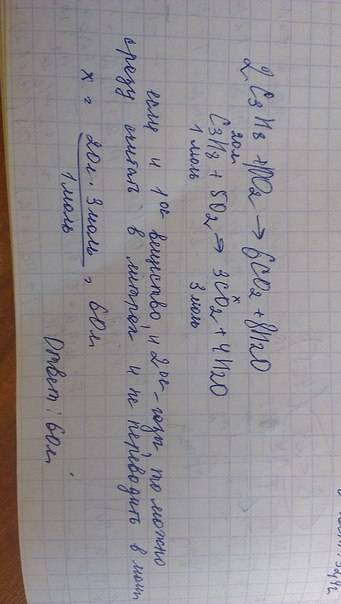 2C3H8 + 10O2 → 6CO2 + 8H2O
20л x
C3H8 + 5O2 → 3CO2 + 4H2O
1 моль 3 моль
если и 1ое вещество, и 2ое - газы, то можно
сразу считать в литрах и не переводить в моли
x = 20л · 3моль / 1моль = 60л
Ответ: 60л.